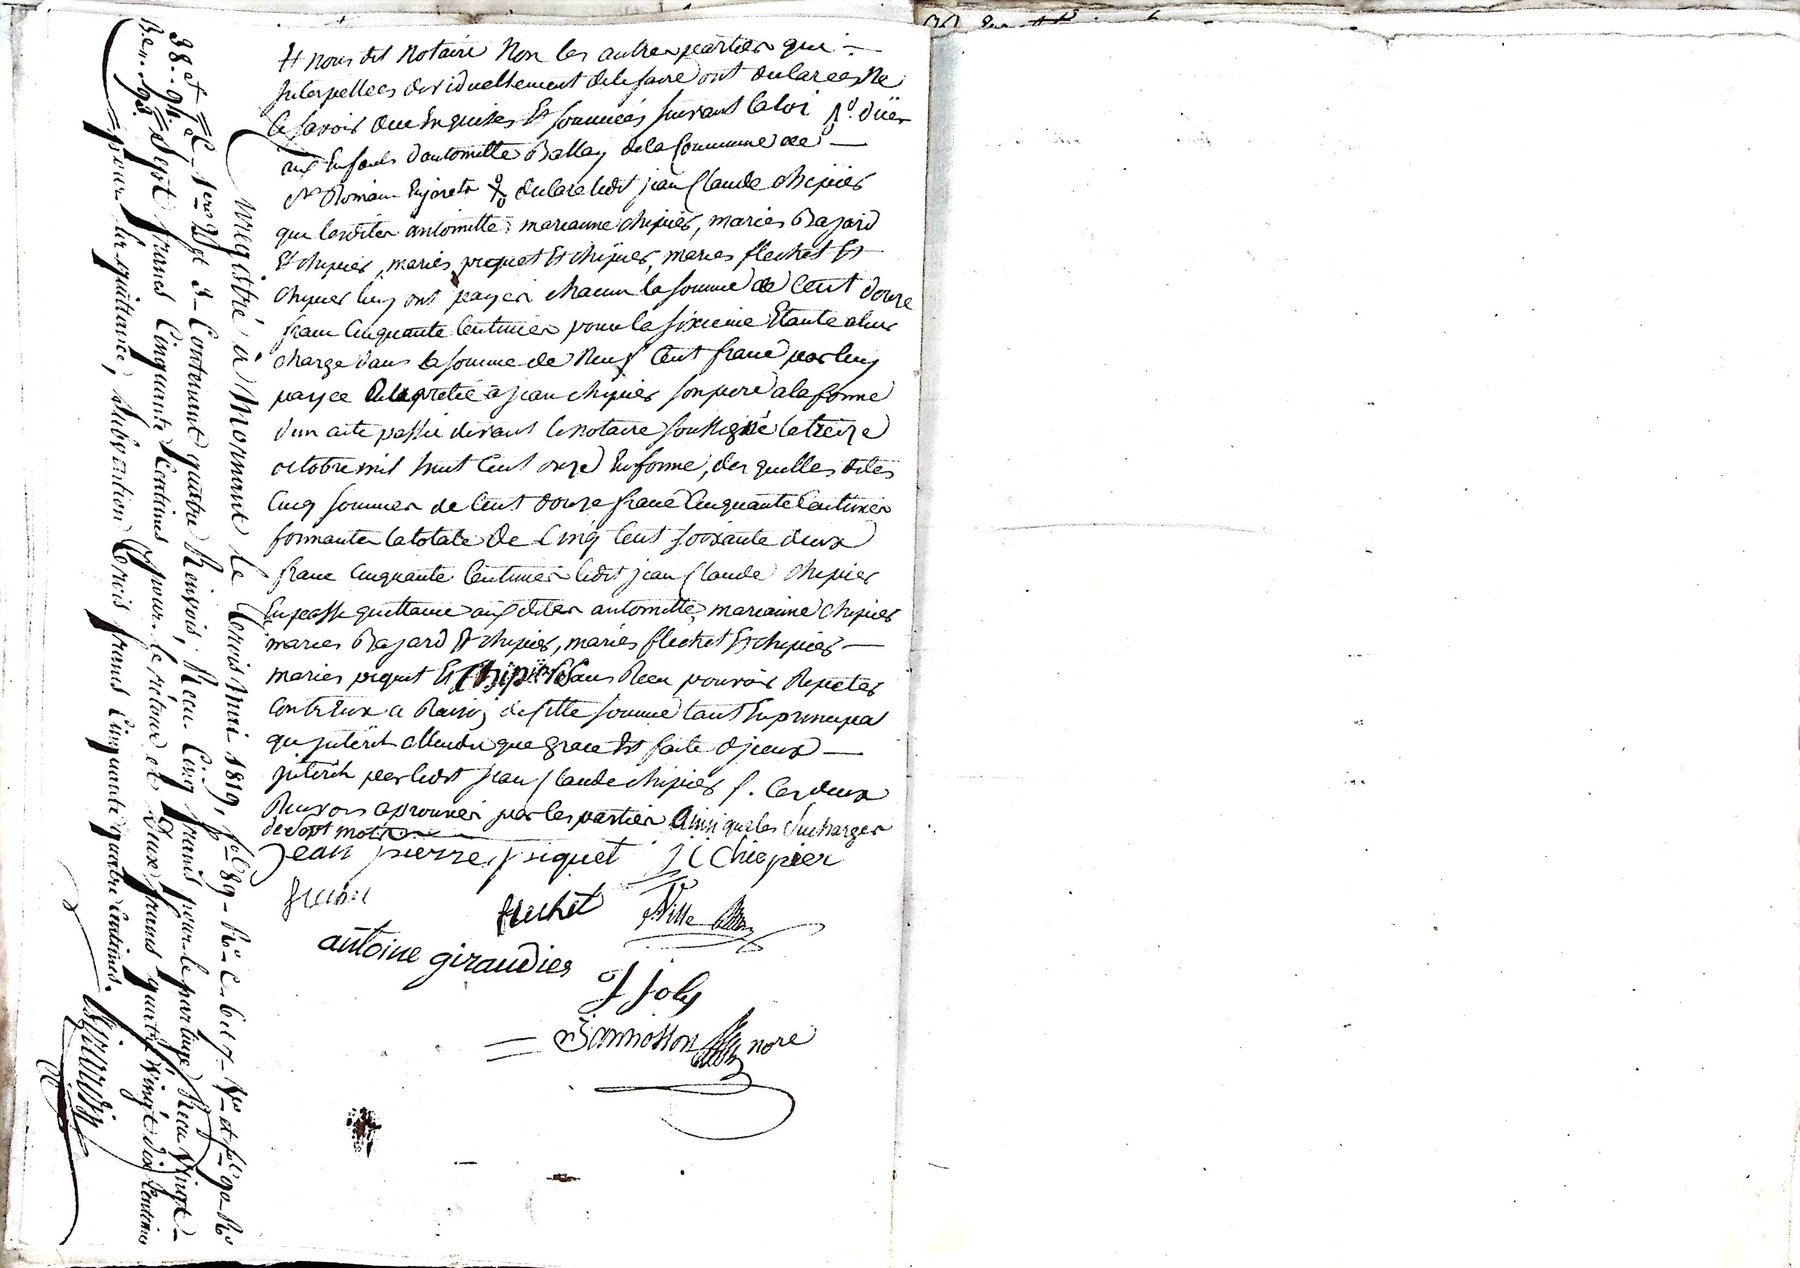 Et nous dit Notaire Non les autres parties qui
Interpellees individuellement de le faire ont declarées Ne
le savoir Due Enquises Et sommées suivant la loi
aux Enfants d'antoinette Ballay de la Commune de
St Romain Enjarets declare ledit jean Claude chipier
que lesdites antoinette, marianne chipier, mariés Bajard
Et chipier, mariés piquet Et chipier, mariés flechet Et
chipier luy ont payer chacun la somme de Cent douze
franc Cinquante Centimes pour le sixieme Etante a leur
charge dans la somme de Neuf Cent franc par luy
payée a jean chipier son pere a la forme
d'un acte passé devant le notaire soussigné le treize
octobre mil huit Cent onze En forme, des quelles dites
Cinq sommes de Cent douze franc Cinquante Centimes
formantes la totale de Cinq Cent soixante deux
franc Cinquante Centimes ledit jean Claude chipier
En passe quittance aux dites antoinette, marianne chipier
mariés Bajard Et chipier, mariés flechet Et chipier
mariés piquet Et Chipier Sans Rien pouvoir Repeter
Contr'Eux a Raison de cette somme tant En principal
qu'jnterêt attendu que grace Est faite d'jceux
jnterêt par ledit jean Claude chipier f. Ces deux
Renvois aprouvés par les parties Ainsi que les surcharges
de sept mots
Jean pierre piquet J C Chiepier
flechet Ville
antoine giraudier
J Joly
Bannosson nore
Enregistré à Mornant le trois mai 1819, fol. 89 - Ro C. 6 et 7 - Vo et fol. 90 - Ro
Contenant quatre Renvois, Recu Cinq francs pour le partage, Recu Vingt
Sept francs Cinquante Centimes pour le retour et Deux francs quatre Vingt dix Centimes
pour la quittance, Subvention Trois francs Cinquante quatre Centimes.